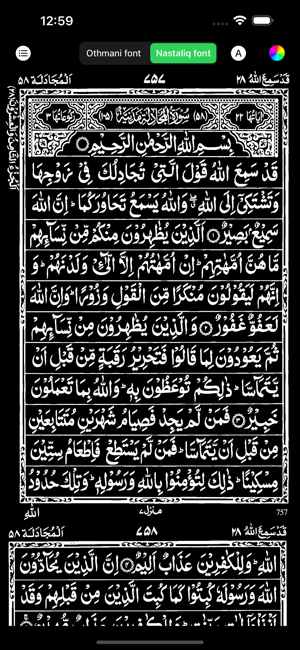 12:59
Othmani font
Nastaliq font
A
قَدْسَمِعَ اللّٰهُ ٢٨
٧٥٧
اَلْمُجَادَلَة ٥٨
اٰيَاتُهَا ٢٢
(٥٨) سُوْرَةُ الْمُجَادَلَةِ مَدَنِيَّةٌ (١٠٥)
رُكُوْعَاتُهَا ٣
بِسْمِ اللّٰهِ الرَّحْمٰنِ الرَّحِيْمِ
قَدْ سَمِعَ اللّٰهُ قَوْلَ الَّتِيْ تُجَادِلُكَ فِيْ زَوْجِهَا
وَتَشْتَكِيْٓ اِلَى اللّٰهِ ۖ وَاللّٰهُ يَسْمَعُ تَحَاوُرَكُمَا ؕ اِنَّ اللّٰهَ
سَمِيْعٌۢ بَصِيْرٌ ۝١ اَلَّذِيْنَ يُظٰهِرُوْنَ مِنْكُمْ مِّنْ نِّسَآئِهِمْ
مَّا هُنَّ اُمَّهٰتِهِمْ ؕ اِنْ اُمَّهٰتُهُمْ اِلَّا الّٰٓـِٔيْ وَلَدْنَهُمْ ؕ وَ
اِنَّهُمْ لَيَقُوْلُوْنَ مُنْكَرًا مِّنَ الْقَوْلِ وَزُوْرًا ؕ وَاِنَّ اللّٰهَ
لَعَفُوٌّ غَفُوْرٌ ۝٢ وَالَّذِيْنَ يُظٰهِرُوْنَ مِنْ نِّسَآئِهِمْ
ثُمَّ يَعُوْدُوْنَ لِمَا قَالُوْا فَتَحْرِيْرُ رَقَبَةٍ مِّنْ قَبْلِ اَنْ
يَّتَمَآسَّا ؕ ذٰلِكُمْ تُوْعَظُوْنَ بِهٖ ؕ وَاللّٰهُ بِمَا تَعْمَلُوْنَ
خَبِيْرٌ ۝٣ فَمَنْ لَّمْ يَجِدْ فَصِيَامُ شَهْرَيْنِ مُتَتَابِعَيْنِ
مِنْ قَبْلِ اَنْ يَّتَمَآسَّا ۚ فَمَنْ لَّمْ يَسْتَطِعْ فَاِطْعَامُ سِتِّيْنَ
مِسْكِيْنًا ؕ ذٰلِكَ لِتُؤْمِنُوْا بِاللّٰهِ وَرَسُوْلِهٖ ؕ وَتِلْكَ حُدُوْدُ
757
منزل٧
اللّٰهِ
قَدْسَمِعَ اللّٰهُ ٢٨
٧٥٨
اَلْمُجَادَلَة ٥٨
اللّٰهِ ؕ وَلِلْكٰفِرِيْنَ عَذَابٌ اَلِيْمٌ ۝٤ اِنَّ الَّذِيْنَ يُحَآدُّوْنَ
اللّٰهَ وَرَسُوْلَهٗ كُبِتُوْا كَمَا كُبِتَ الَّذِيْنَ مِنْ قَبْلِهِمْ وَقَدْ